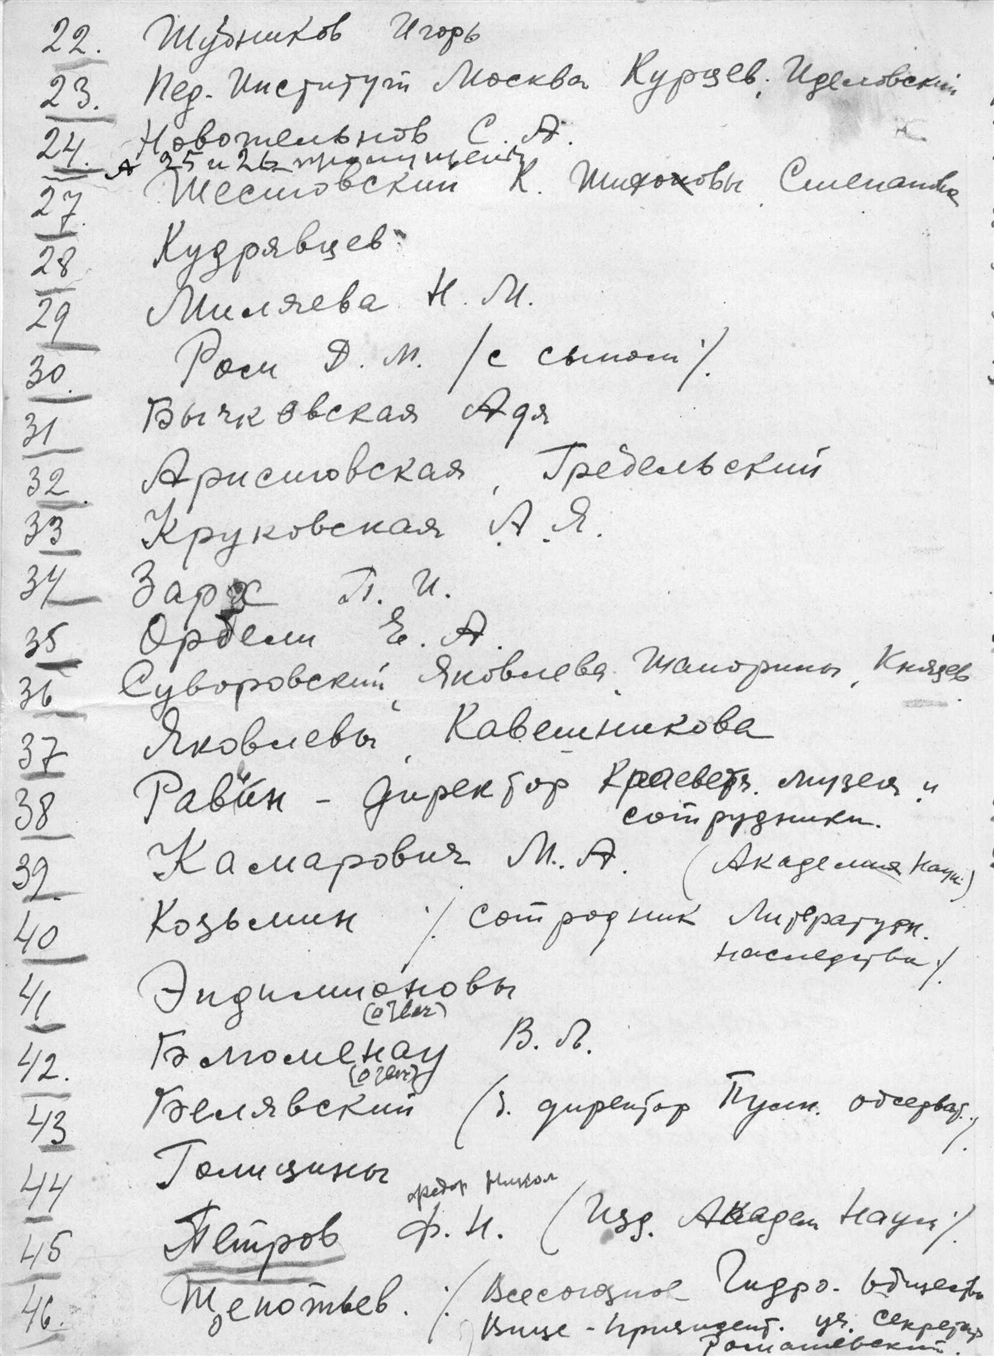 22. Шубников Игорь
23. Пед. Институт Москва Курцев, Иделовский
24. Новотельнов С. А.
А 25 и 26 пропущены
27. Шестовский К. Тихоновы, Степанова
28 Кудрявцев
29 Миляева Н. М.
30. Ром Д. М. /с сыном/.
31 Бычковская Адя
32. Аристовская, Гребельский
33 Круковская А. Я.
34 Зарх П. И.
35 Орбели Е. А.
36 Суворовский, Яковлева, Шапорины, Князев
37 Яковлевы, Кавешникова
38 Равин - директор Краевед. музея и
сотрудники.
39. Камарович М. А. (Академия Наук)
40 Козьмин /сотродник Литературн.
наследства/.
41 Эндимионовы
(отвеч)
42. Блюменау В. Л.
(отвеч)
43 Белявский (з. директор Пулк. обсерват.)
44 Голицины
федор Никол
45 Петров Ф. Н. (Изд. Академ Наук/.
46. Щепотьев. /Всесоюзное Гидро. общество
Вице-президент. уч. секретарь
Ромашевский.